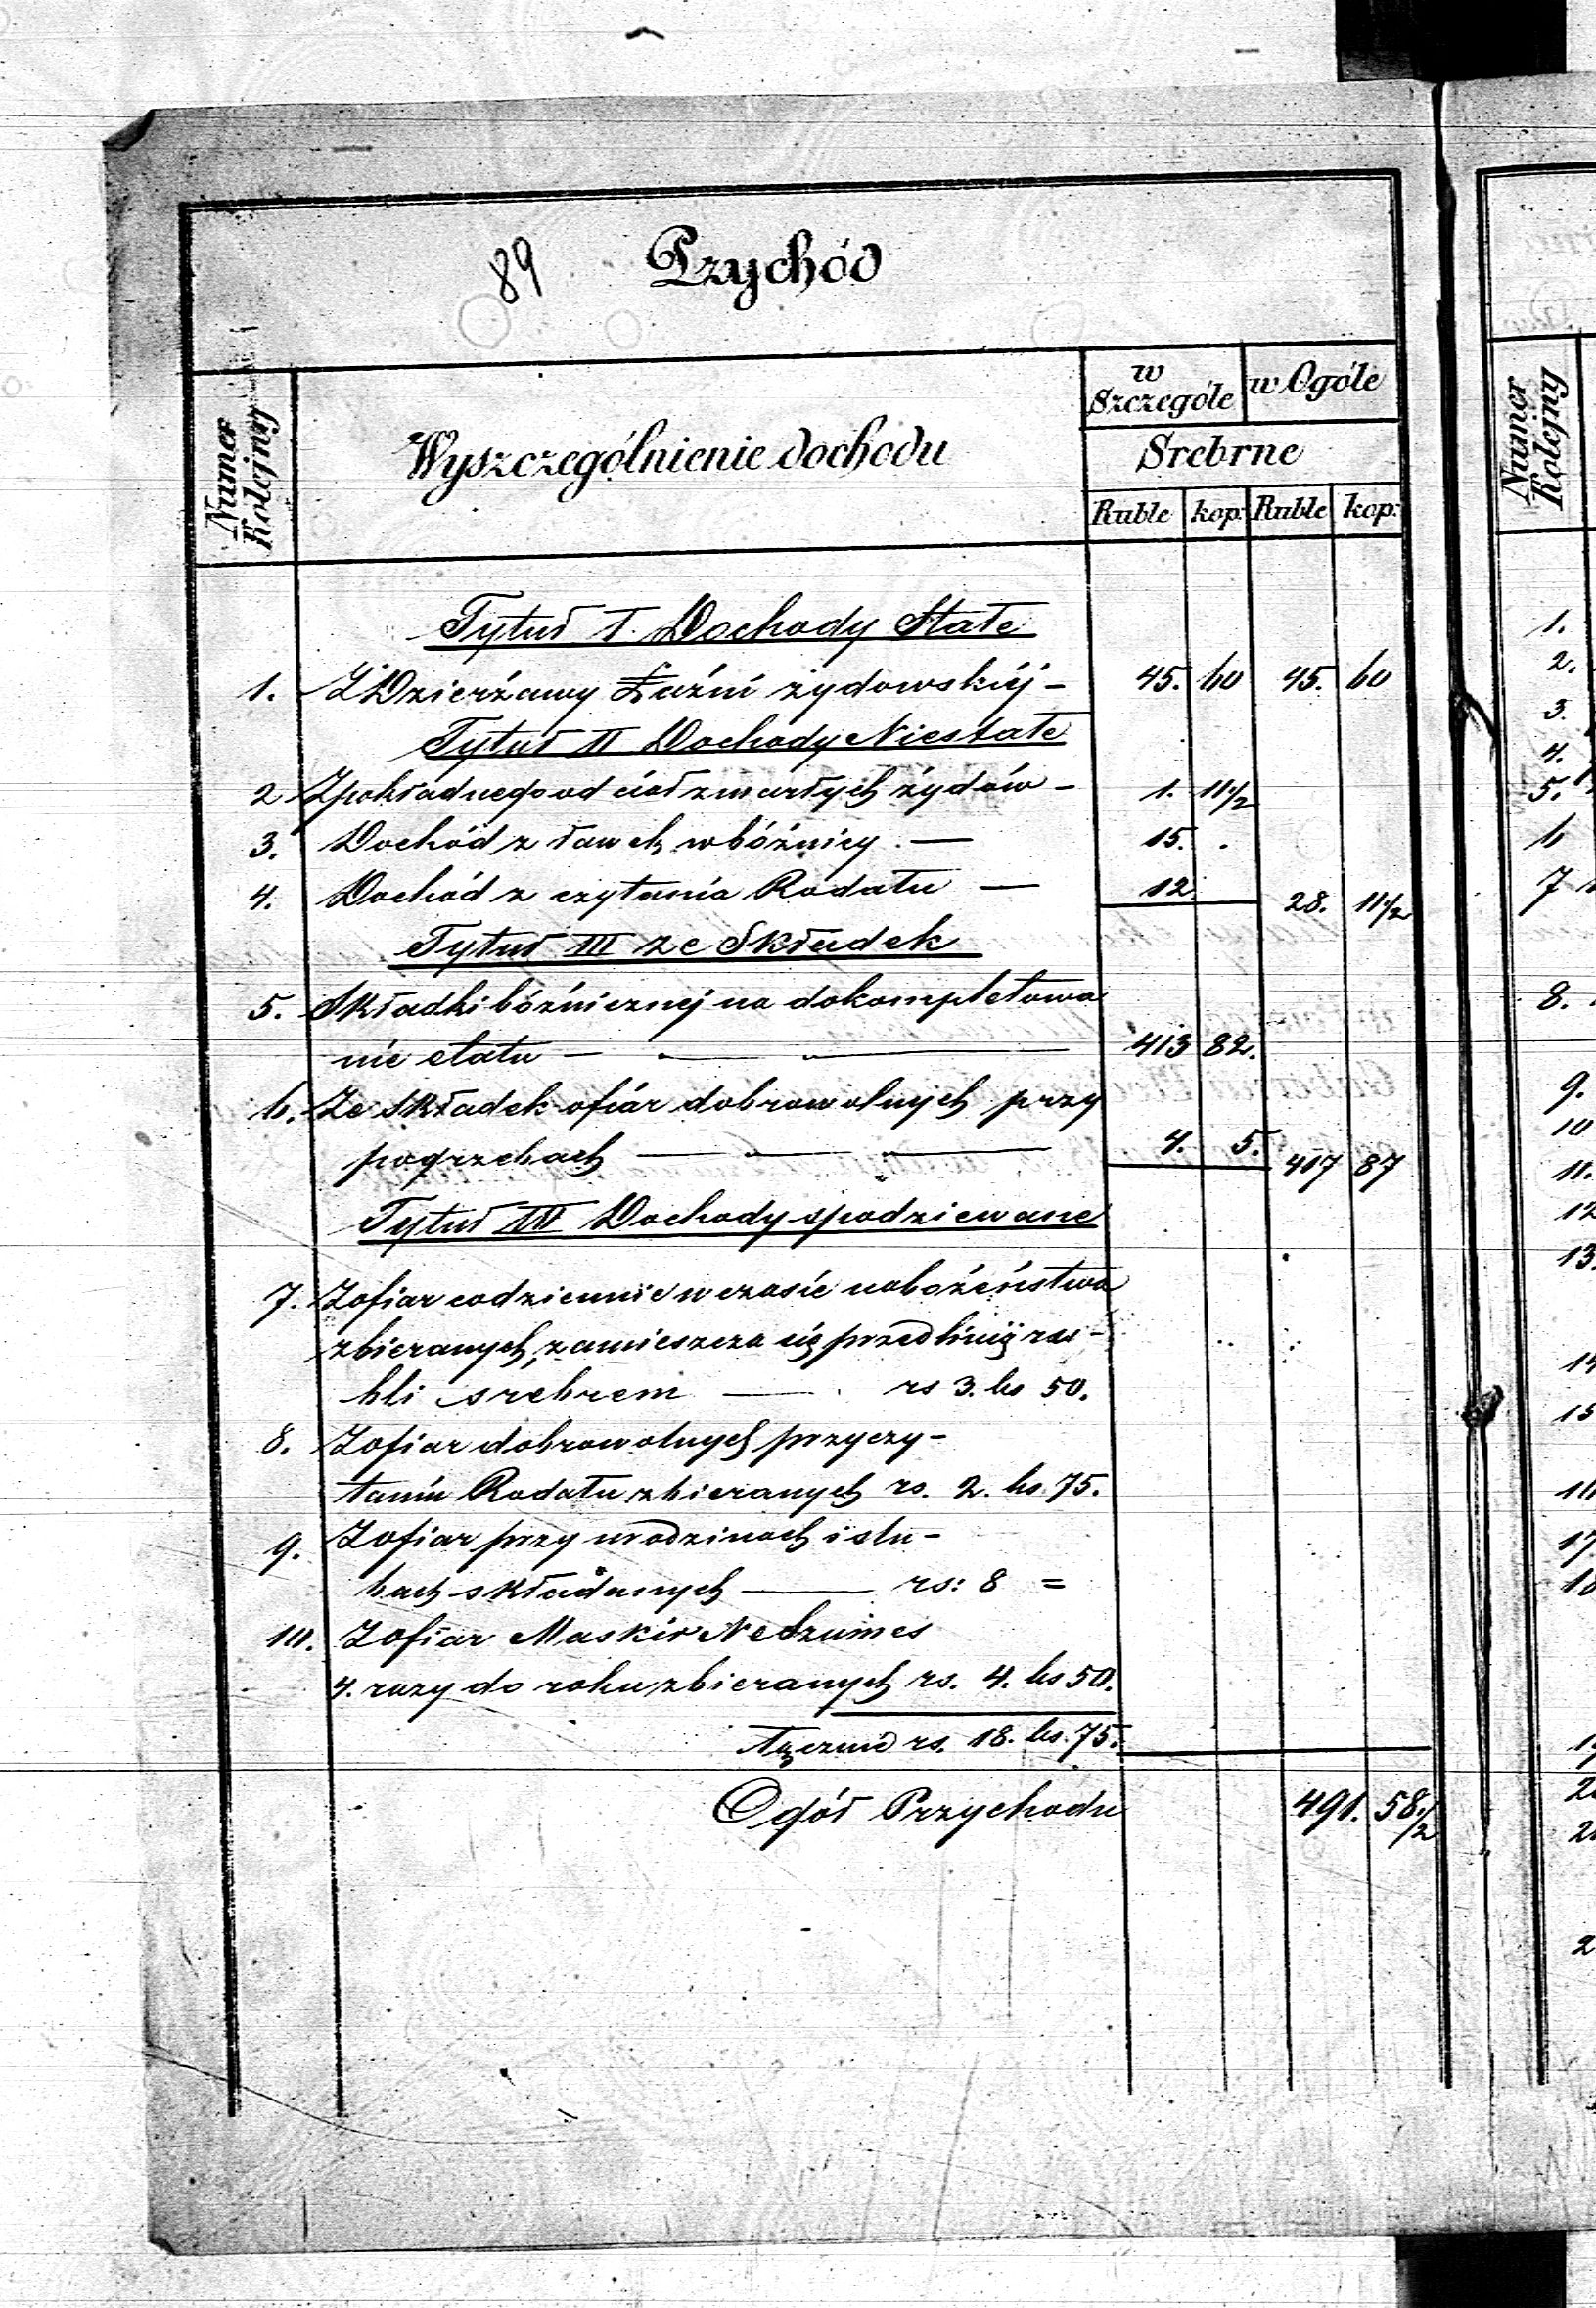 89 Przychód
Numer Kolejny
Wyszczególnienie dochodu
w Szczególe
w Ogóle
Srebrne
Ruble kop: Ruble kop:
Tytuł I. Dochody Stałe
1. Z Dzierżawy Łaźni żydowskiéj — 45. 60 45. 60
Tytuł II Dochody Niestałe
2 Z pokładnego od ciał zmarłych żydów — 1. 11 1/2
3. Dochód z ławek w bóźnicy — 15. .
4. Dochód z czytania Rodału — 12. 28. 11 1/2
Tytuł III ze Składek
5. Składki bóźnicznéj na dokompletowa
nie etatu — — — 413 82.
6. Ze składek ofiar dobrowolnych przy
pogrzebach — — — 4. 5. 417 87
Tytuł IV Dochody spodziewane
7. Z ofiar codziennie w czasie nabożeństwa
zbieranych, zamieszcza się przed liniją ru-
bli srebrem — rs 3. ks 50.
8. Z ofiar dobrowolnych przy czy-
taniu Rodału zbieranych rs. 2. ks. 75.
9. Z ofiar przy urodzinach i ślu-
bach składanych — rs: 8 =
10. Z ofiar Maskir Neszumes
4. razy do roku zbieranych rs. 4. ks 50.
Łącznie rs. 18. ks. 75.
Ogół Przychodu 491. 58 1/2
Numer Kolejny
1.
2.
3.
4.
5.
6
7
8.
9.
10
11.
12
13.